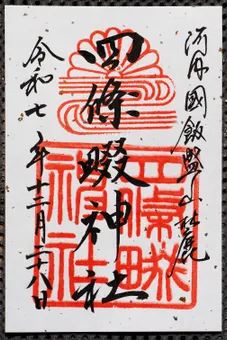 河内國飯盛山麓
四條畷神社
令和七年十二月二八日
四條畷神社